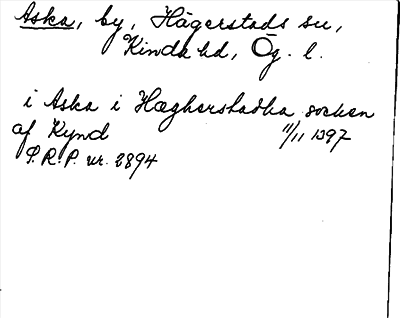 Aska, by, Hägerstads sn,
Kinda hd, Ög. l.
i Aska i Hægherstadha socken
af Kynd 11/11 1397
S.R.P. nr. 2894